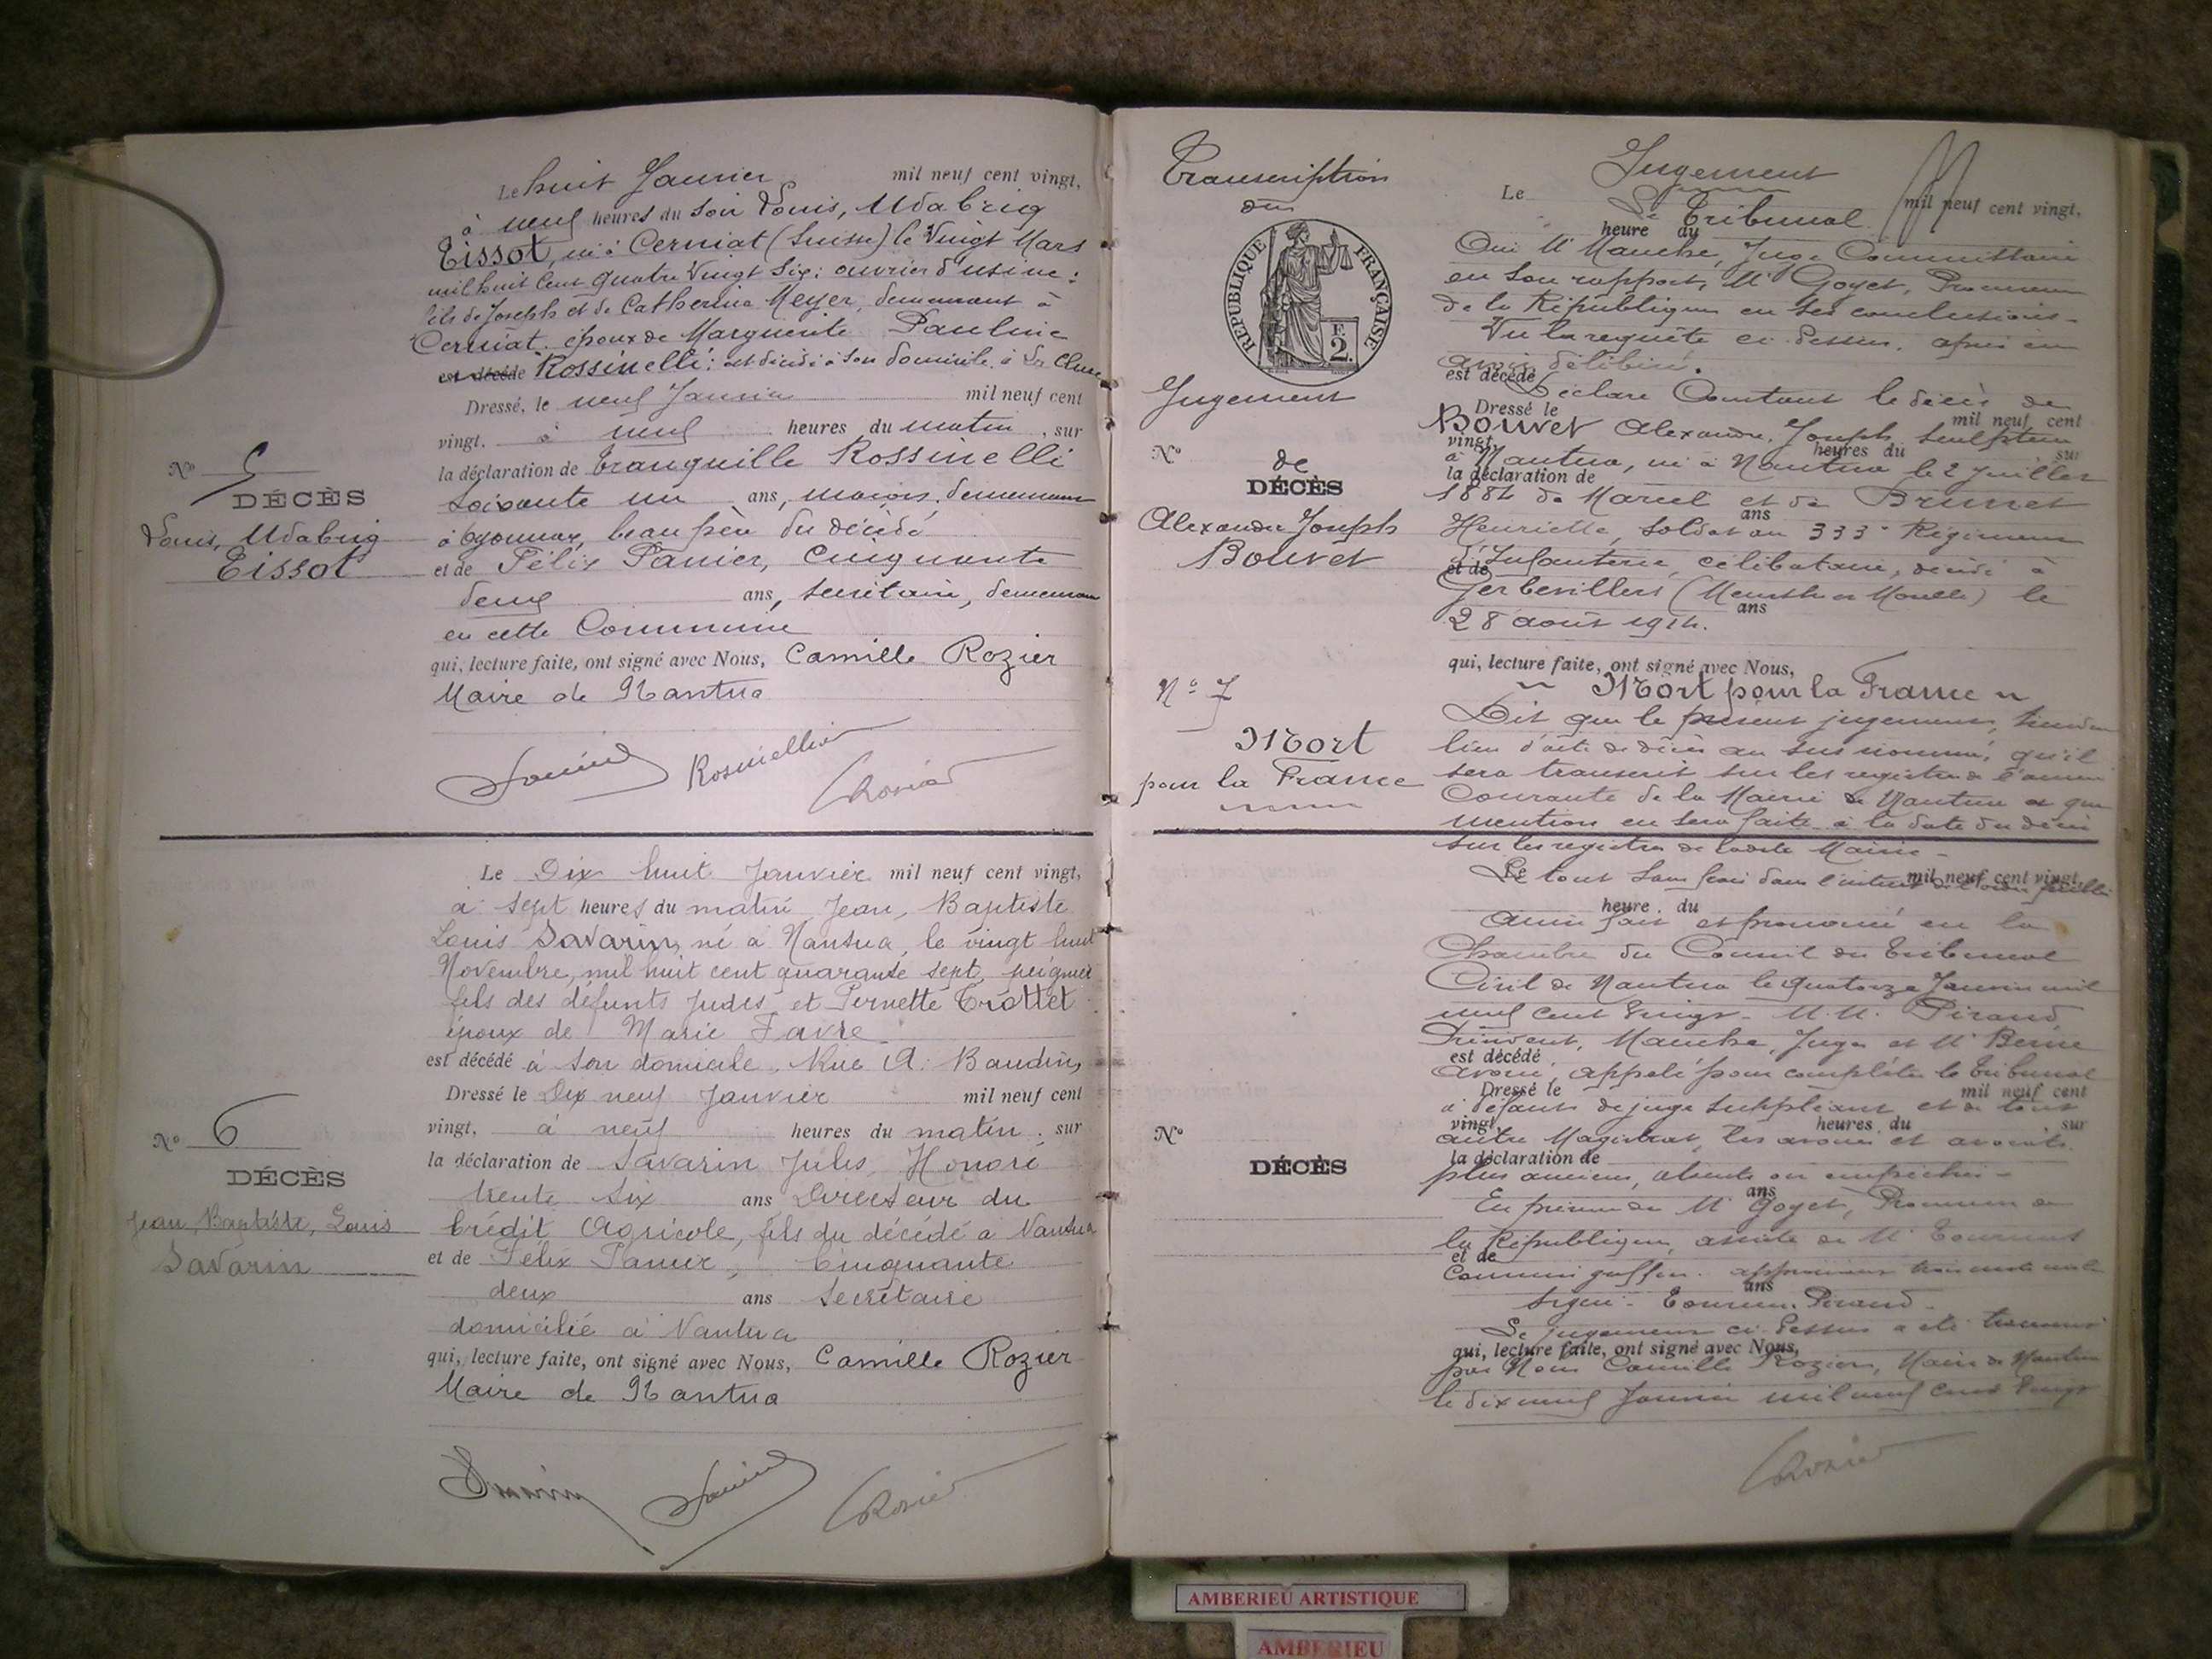 Le huit Janvier mil neuf cent vingt,
à neuf heures du soir Louis, Udalrig
Tissot, né à Cerniat (Suisse) le Vingt Mars
mil huit Cent quatre Vingt Six; ouvrier d'usine;
fils de Joseph et de Catherine Meyer, demeurant à
Cerniat, époux de Marguerite Pauline
est décédé Rossinelli; est décédé à son domicile à La Cluse
Dressé, le neuf Janvier mil neuf cent
vingt, à neuf heures du matin, sur
la déclaration de Tranquille Rossinelli
soixante un ans, maçon, demeurant
à Oyonnax, beau père du décédé
et de Félix Panier, Cinquante
deux ans, secrétaire, demeurant
en cette Commune
qui, lecture faite, ont signé avec Nous, Camille Rozier
Maire de Nantua
N° 5
DÉCÈS
Tissot
Rossinelli
CRozier
Le Dix huit Janvier mil neuf cent vingt,
à sept heures du matin Jean, Baptiste
Louis Savarin, né à Nantua, le vingt huit
Novembre, mil huit cent quarante sept, peignier
fils des défunts Judes et Pernette Trottet
époux de Marie Favre
est décédé à son domicile, Rue A. Baudin,
Dressé le Dix neuf Janvier mil neuf cent
vingt, à neuf heures du matin, sur
la déclaration de Savarin Jules, Honoré
trente six ans Directeur du
Crédit Agricole, fils du décédé à Nantua
et de Félix Panier, Cinquante
deux ans Secrétaire
domicilié à Nantua
qui, lecture faite, ont signé avec Nous, Camille Rozier
Maire de Nantua
N° 6
DÉCÈS
Jean, Baptiste, Louis
Savarin
CRozier
Transcription
du
REPUBLIQUE FRANÇAISE
F.
2.
Jugement
N°
de
DÉCÈS
Alexandre Joseph
Bouvet
N° 7
Mort
pour la France
Jugement
Le mil neuf cent vingt,
Le Tribunal
heure du
Oui Mr Manche, Juge Commissaire
en son rapport, Mr Goyet, Procureur
de la République en ses conclusions
Vu la requête ci dessus, après en
avoir délibéré.
est décédé
Déclare Constant le décès de
Dressé le mil neuf cent
Bouvet Alexandre, Joseph, sculpteur
vingt, heures du sur
à Nantua, né à Nantua le 2 Juillet
la déclaration de
1884 de Marcel et de Brunet
ans
Henriette, soldat au 333e Régiment
d'Infanterie, célibataire, décédé à
et de
Gerbevillers (Meurthe et Moselle) le
ans
28 août 1914.
qui, lecture faite, ont signé avec Nous,
Mort pour la France
Dit que le présent jugement, tiendra
lieu d'acte de décès au sus nommé, qu'il
sera transcrit sur les registres de l'année
Courante de la Mairie de Nantua et que
mention en sera faite à la date du décès
sur les registres de ladite Mairie
Le mil neuf cent vingt,
Le tout sans frais dans l'intérêt
heure du
Ainsi fait et prononcé en la
Chambre du Conseil du Tribunal
Civil de Nantua le quatorze Janvier mil
neuf cent Vingt - M.M. Pirand
Président, Manche, Juge et Mr Berne
est décédé
avoué, appelé pour compléter le Tribunal
Dressé le mil neuf cent
à défaut de juge suppléant et de tout
vingt, heures du sur
autre Magistrat, les avoués et avocats
la déclaration de
plus anciens, absents ou empêchés
ans
En présence de Mr Goyet, Procureur de
la République, assisté de Mr
et de
Commis greffier.
ans
Signé -
Le jugement ci dessus a été transcrit
qui, lecture faite, ont signé avec Nous,
par Nous Camille Rozier, Maire de Nantua
le dix neuf Janvier mil neuf cent Vingt
CRozier
N°
DÉCÈS
AMBERIEU ARTISTIQUE
AMBERIEU